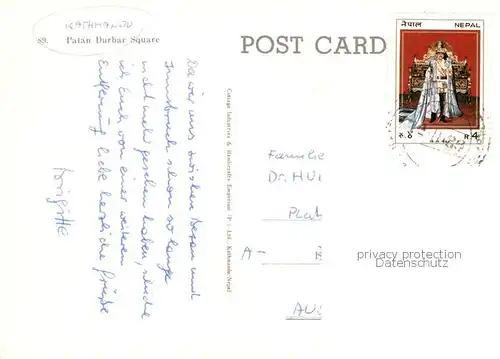 KATHMANDU
89. Patan Durbar Square
POST CARD
नेपाल NEPAL
रु. ४ R 4
Cottage Industries & Handicrafts Emporium (P.) Ltd., Kathmandu/Nepal
Da wir uns zwischen und
Innsbruck schon so lange
nicht mehr gesehen haben, schicke
ich Euch von einer weiteren
Entfernung liebe herzliche Grüße
Brigitte
Familie
Dr. HU
Plat
A-
AU
privacy protection
Datenschutz